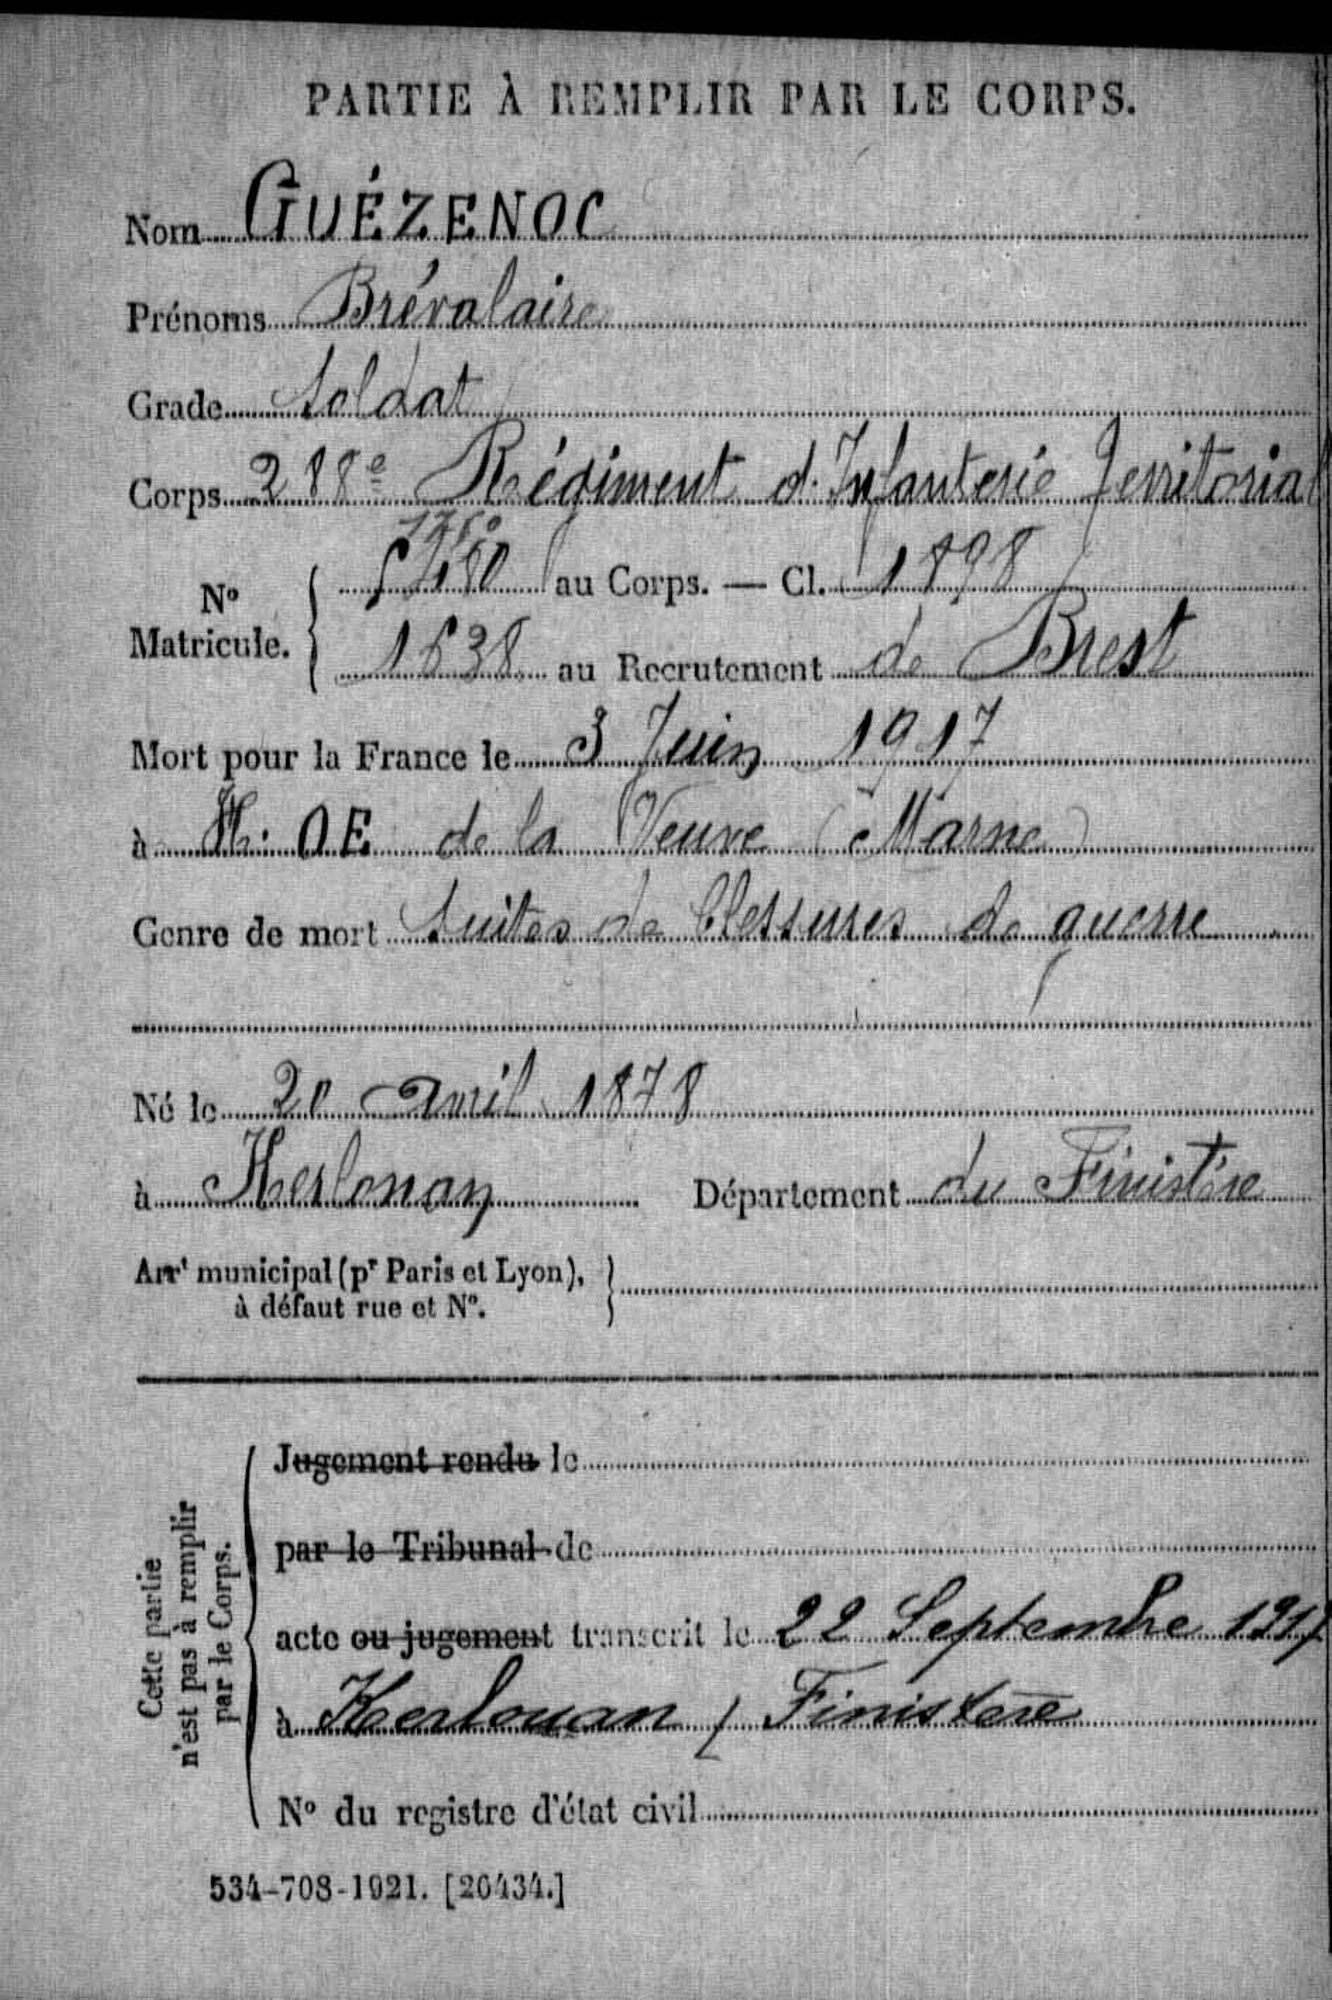 PARTIE À REMPLIR PAR LE CORPS.
Nom GUÉZENOC
Prénoms Brévalaire
Grade Soldat
Corps 288e Régiment d'Infanterie Territorial
N° Matricule. au Corps. — Cl. 1898
1638 au Recrutement de Brest
Mort pour la France le 3 Juin 1917
à H. OE de la Veuve (Marne)
Genre de mort Suites de blessures de guerre
Né le 20 avril 1878
à Kerlouan Département du Finistère
Arrt municipal (pr Paris et Lyon),
à défaut rue et N°.
Cette partie
n'est pas à remplir
par le Corps.
Jugement rendu le
par le Tribunal de
acte ou jugement transcrit le 22 Septembre 1917
à Kerlouan / Finistère
N° du registre d'état civil
534-708-1921. [26434.]